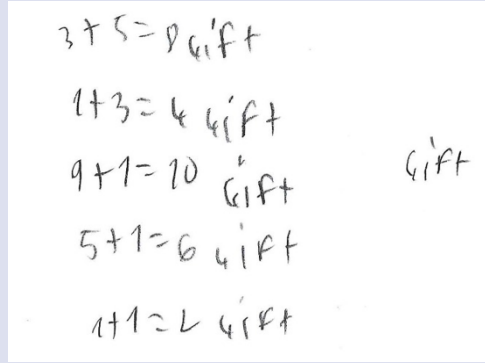 3+5=8 Çift
1+3=4 Çift
9+1=10 Çift
Çift
5+1=6 Çift
1+1=2 Çift